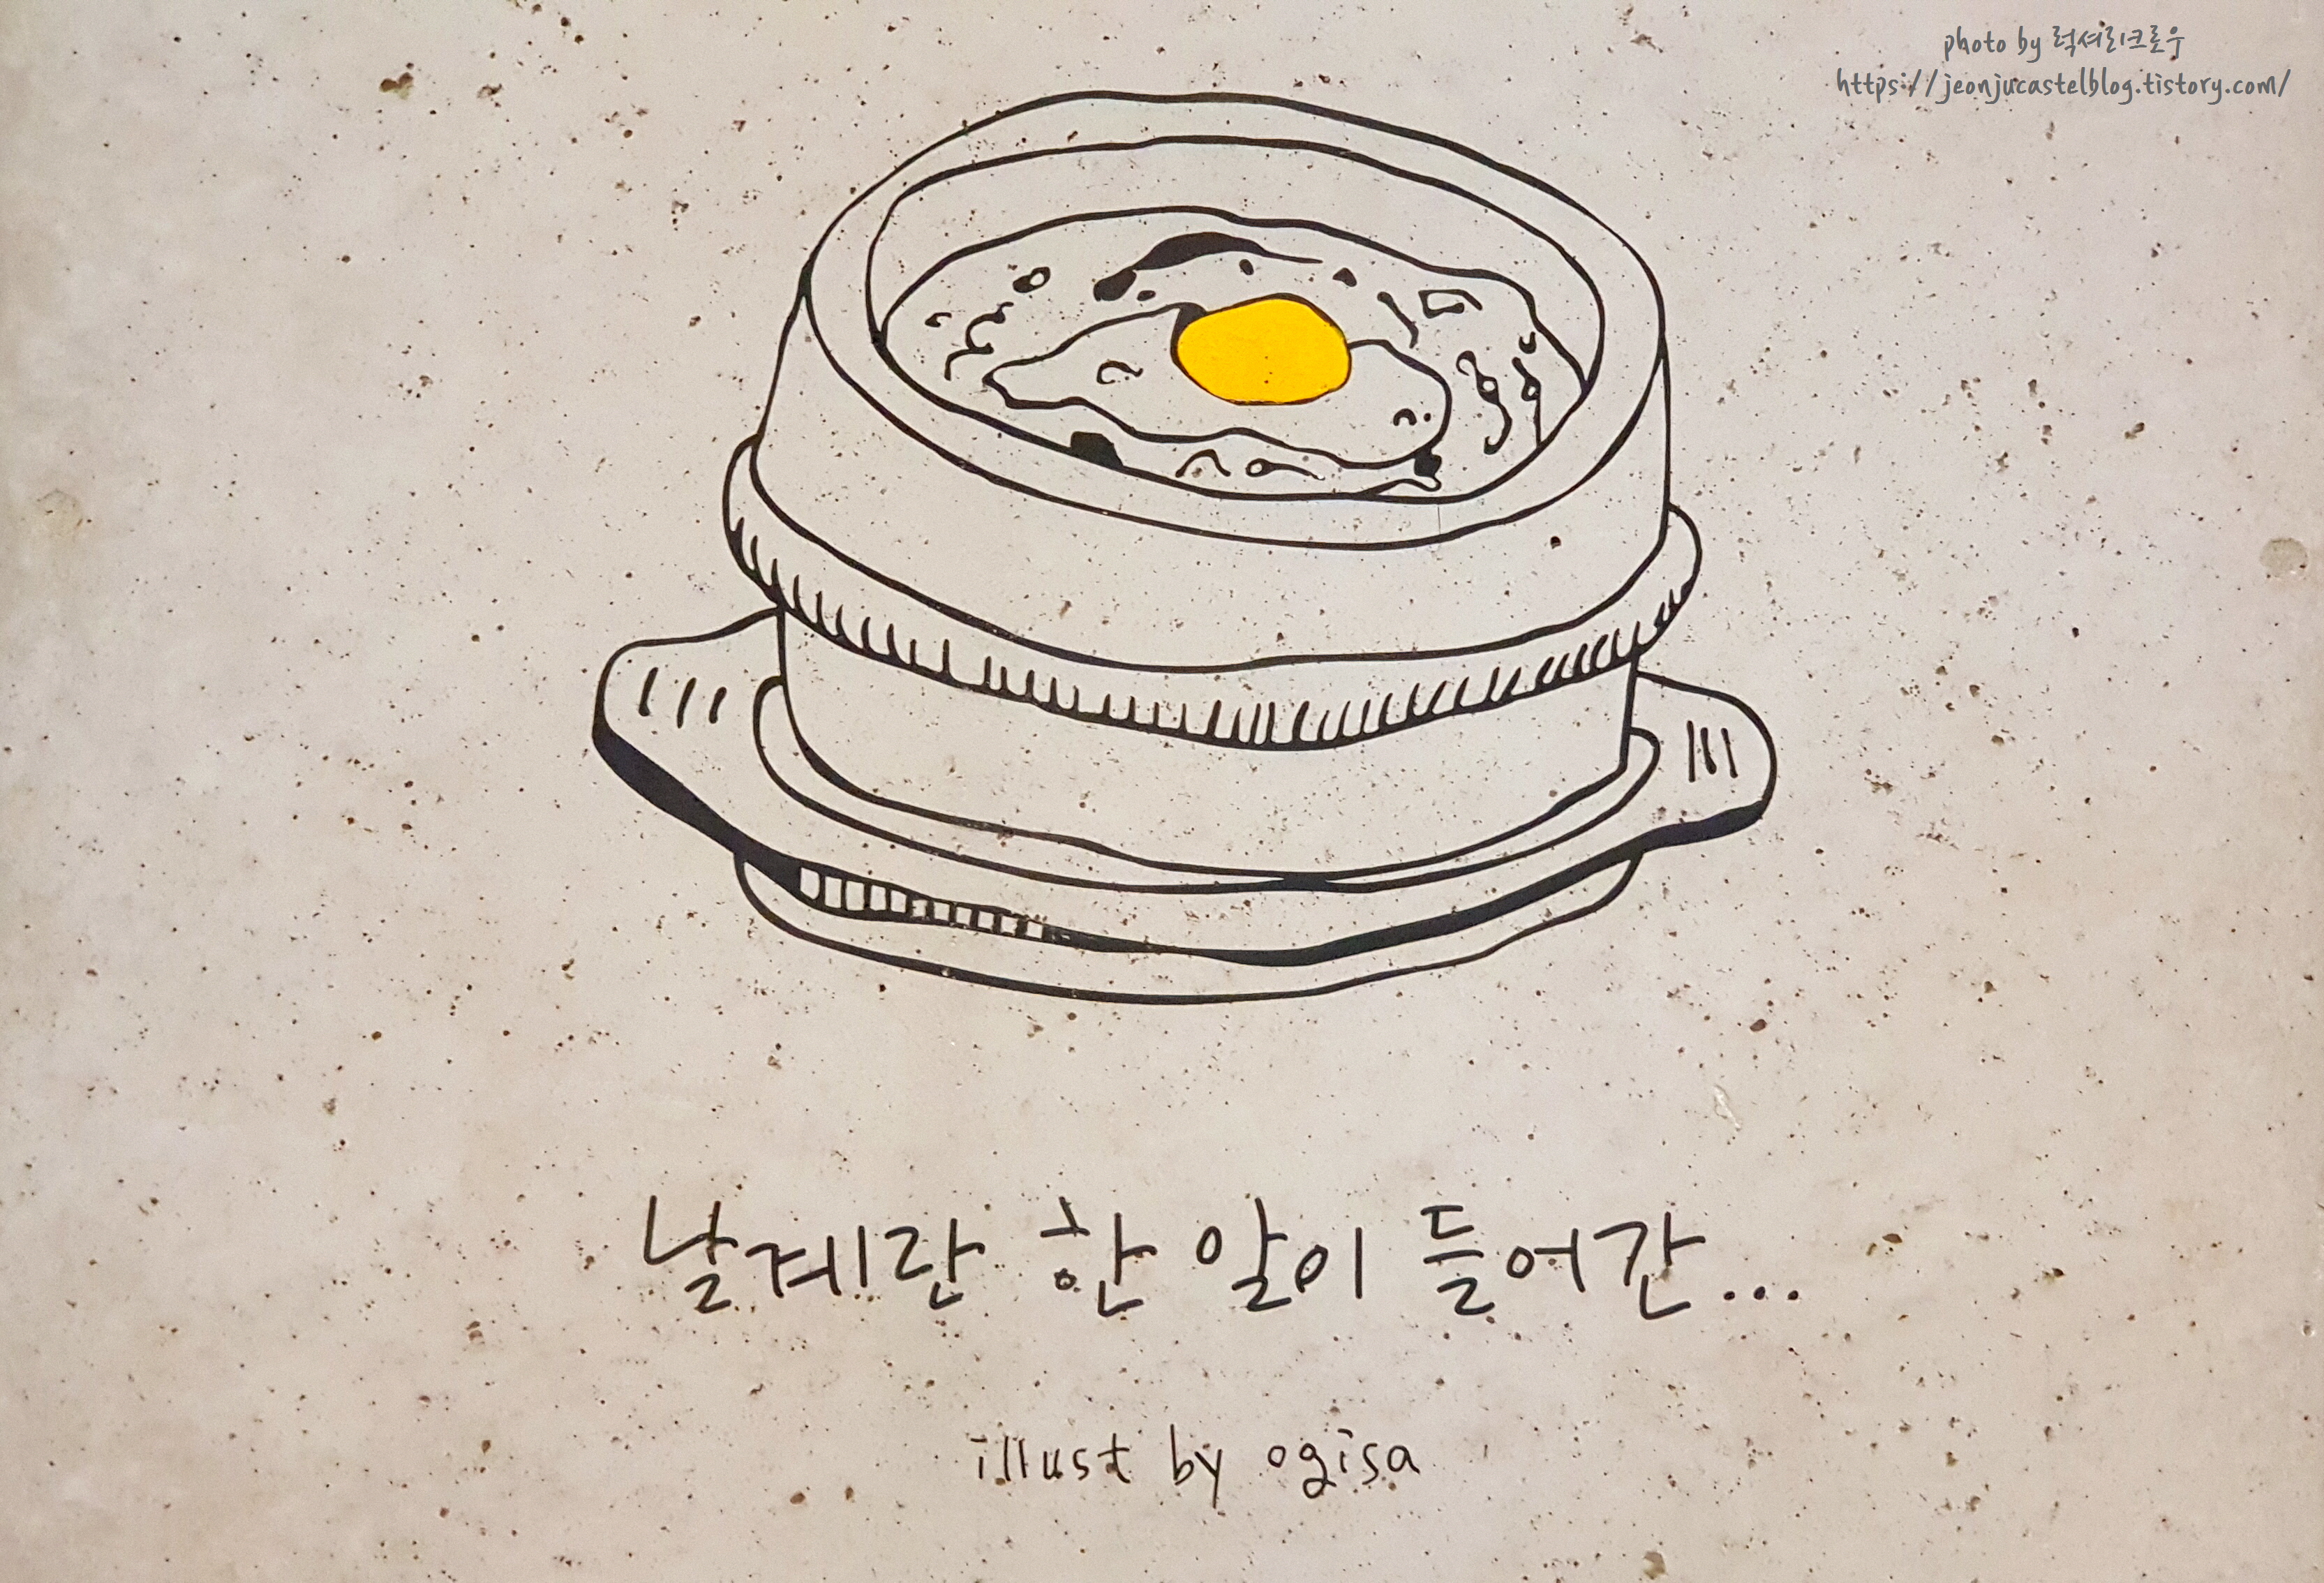 photo by 럭셔리크로우
https://jeonjucastelblog.tistory.com/
날계란 한 알이 들어간...
illust by ogisa